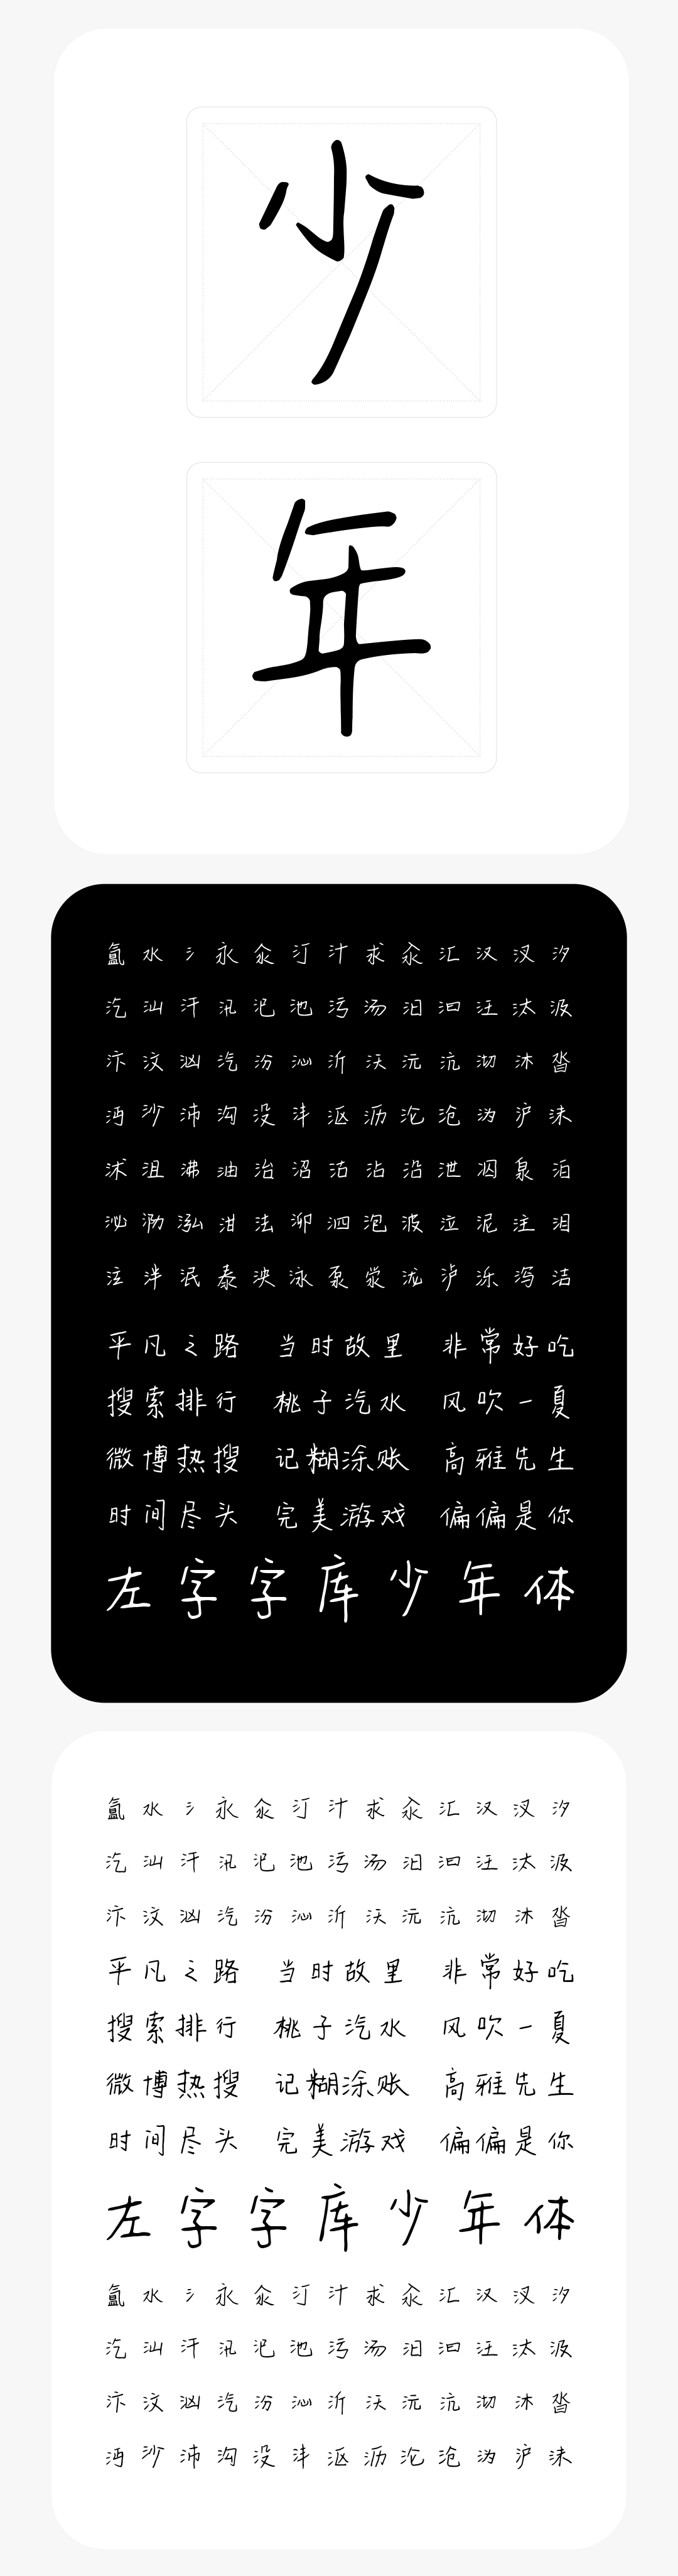 少
年
氲水氵永氽汀汁求汆汇汉汊汐
汔汕汗汛汜池污汤汨汩汪汰汲
汴汶汹汽汾沁沂沃沅沆沏沐沓
沔沙沛沟没沣沤沥沦沧沩沪沫
沭沮沸油治沼沽沾沿泄泅泉泊
泌泐泓泔法泖泗泡波泣泥注泪
泫泮泯泰泱泳泵泶泷泸泺泻洁
平凡之路 当时故里 非常好吃
搜索排行 桃子汽水 风吹一夏
微博热搜 记糊涂账 高雅先生
时间尽头 完美游戏 偏偏是你
左字字库少年体
氲水氵永氽汀汁求汆汇汉汊汐
汔汕汗汛汜池污汤汨汩汪汰汲
汴汶汹汽汾沁沂沃沅沆沏沐沓
平凡之路 当时故里 非常好吃
搜索排行 桃子汽水 风吹一夏
微博热搜 记糊涂账 高雅先生
时间尽头 完美游戏 偏偏是你
左字字库少年体
氲水氵永氽汀汁求汆汇汉汊汐
汔汕汗汛汜池污汤汨汩汪汰汲
汴汶汹汽汾沁沂沃沅沆沏沐沓
沔沙沛沟没沣沤沥沦沧沩沪沫